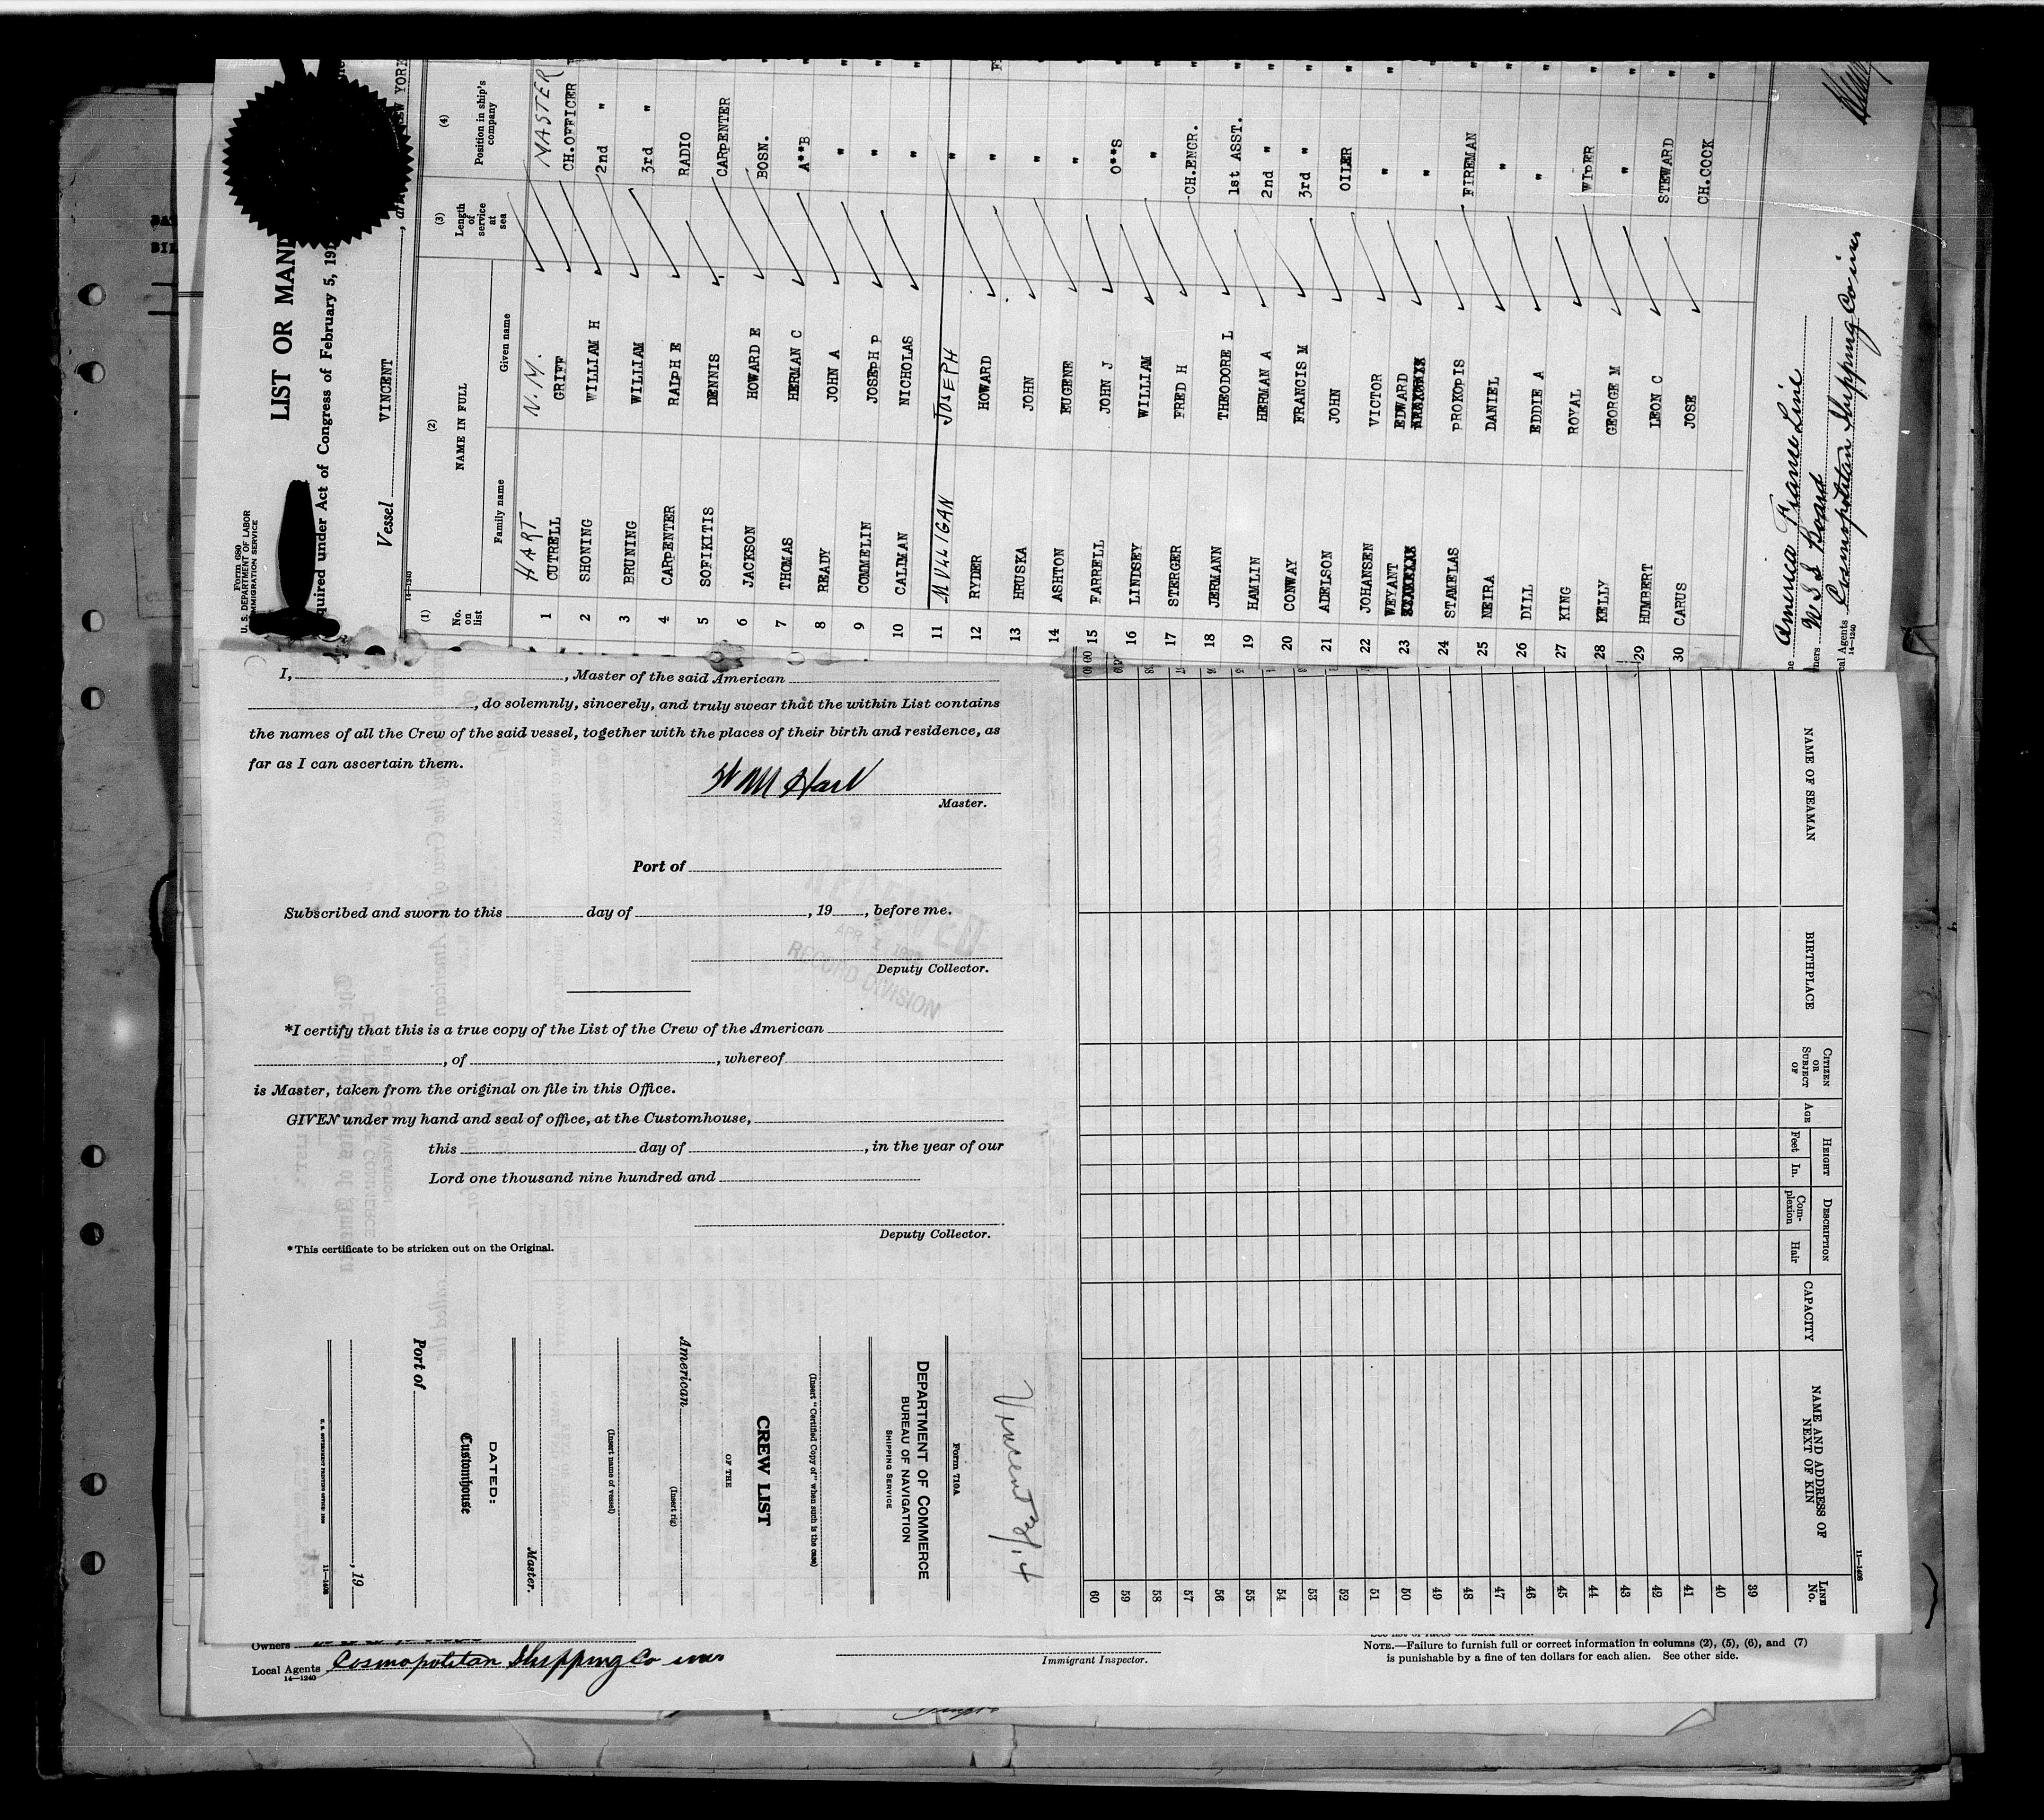 Form 680
U. S. DEPARTMENT OF LABOR
IMMIGRATION SERVICE
LIST OR MANI
quired under Act of Congress of February 5, 191
Vessel VINCENT , arr NEW YORK
14-1240
(1) (2) (3) (4)
No. on list NAME IN FULL Length of service at sea Position in ship's company
Family name Given name
HART N. M. MASTER
1 CUTRELL GRIFF CH.OFFICER
2 SHONING WILLIAM H 2nd "
3 BRUNING WILLIAM 3rd "
4 CARPENTER RALPH E RADIO
5 SOFIKITIS DENNIS CARPENTER
6 JACKSON HOWARD E BOSN.
7 THOMAS HERMAN C A**B
8 READY JOHN A "
9 COMMELIN JOSEPH P "
10 CALIMAN NICHOLAS "
11 MULLIGAN JOSEPH "
12 RYDER HOWARD "
13 HRUSKA JOHN "
14 ASHTON EUGENE "
15 FARRELL JOHN J O**S
16 LINDSEY WILLIAM "
17 STERGER FRED H CH.ENGR.
18 JERMANN THEODORE L 1st ASST.
19 HAMLIN HERMAN A 2nd "
20 CONWAY FRANCIS M 3rd "
21 ADELSON JOHN OILER
22 JOHANSEN VICTOR "
23 WEYANT EDWARD "
24 STAMELAS PROKOPIS FIREMAN
25 NEIRA DANIEL "
26 DILL EDDIE A "
27 KING ROYAL WIPER
28 KELLY GEORGE M "
29 HUMBERT LEON C STEWARD
30 CARUS JOSE CH.COCK
America France Line
ners U S S Board
cal Agents Cosmopolitan Shipping Co
14-1240
I, , Master of the said American
, do solemnly, sincerely, and truly swear that the within List contains
the names of all the Crew of the said vessel, together with the places of their birth and residence, as
far as I can ascertain them.
N M Hart
Master.
Port of
Subscribed and sworn to this day of , 19 , before me.
Deputy Collector.
RECEIVED
APR 1
RECORD DIVISION
*I certify that this is a true copy of the List of the Crew of the American
, of , whereof
is Master, taken from the original on file in this Office.
GIVEN under my hand and seal of office, at the Customhouse,
this day of , in the year of our
Lord one thousand nine hundred and
Deputy Collector.
*This certificate to be stricken out on the Original.
Vincent 3/14
Form 710A
DEPARTMENT OF COMMERCE
BUREAU OF NAVIGATION
SHIPPING SERVICE
(Insert "Certified Copy of" when such is the case)
CREW LIST
OF THE
American
(Insert rig)
(Insert name of vessel)
Master.
DATED:
Customhouse
Port of
, 19
11-1408
11-1408
LINE No.
NAME OF SEAMAN
BIRTHPLACE
CITIZEN OR SUBJECT OF
AGE
HEIGHT
Feet In.
DESCRIPTION
Complexion Hair
CAPACITY
NAME AND ADDRESS OF NEXT OF KIN
39
40
41
42
43
44
45
46
47
48
49
50
51
52
53
54
55
56
57
58
59
60
Owners
Local Agents Cosmopolitan Shipping Co
14-1240
Immigrant Inspector.
NOTE.—Failure to furnish full or correct information in columns (2), (5), (6), and (7)
is punishable by a fine of ten dollars for each alien. See other side.